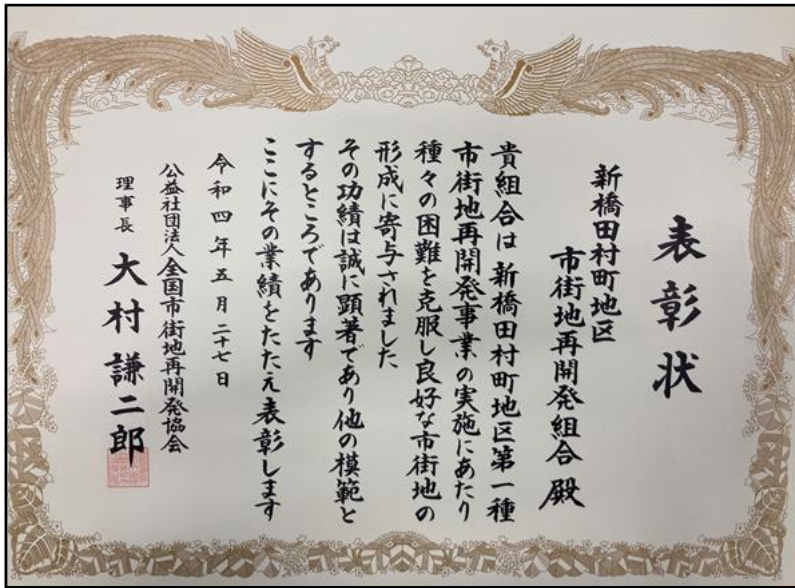 表彰状
新橋田村町地区
市街地再開発組合 殿
貴組合は新橋田村町地区第一種
市街地再開発事業の実施にあたり
種々の困難を克服し良好な市街地の
形成に寄与されました
その功績は誠に顕著であり他の模範と
するところであります
ここにその業績をたたえ表彰します
令和四年五月二十七日
公益社団法人全国市街地再開発協会
理事長 大村謙二郎